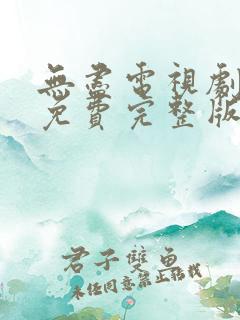 無盡電視劇
免費完整版
君子雙魚
未经同意禁止搭载